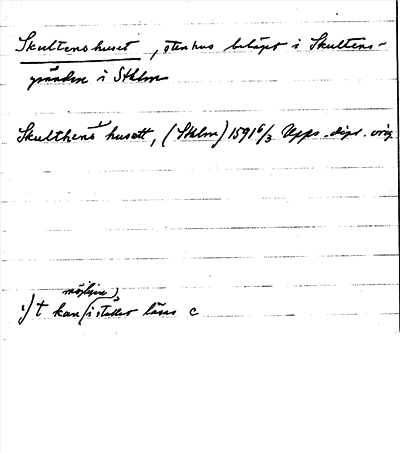 Skultens huset, stenhus beläget i Skultens-
gränden i Sthlm
Skulthens¹⁾ husett, (Sthlm) 1591 6/3 Upps. dipl. orig
möjligen
¹⁾ t kan (i stället läsas c